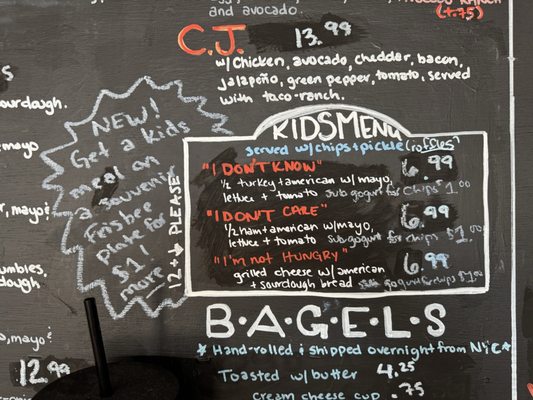 and avocado.
(+.75)
C.J. 13.99
w/ chicken, avocado, cheddar, bacon,
jalapeño, green pepper, tomato, served
with taco-ranch.
ourdough.
mayo
r, mayo &
umbles,
dough
s, mayo &
12.99
NEW!
Get a kids
meal on
a souvenir
frisbee
plate for
$1!
more
12 + ↓ PLEASE
KIDS MENU
served w/chips + pickle (ruffles)
"I DON'T KNOW" 6.99
1/2 turkey + american w/ mayo,
lettuce + tomato sub gogurt for chips $1.00
"I DON'T CARE" 6.99
1/2 ham + american w/ mayo,
lettuce + tomato sub gogurt for chips $1.00
"I'm not HUNGRY" 6.99
grilled cheese w/ american
+ sourdough bread sub gogurt for chips $1.00
B·A·G·E·L·S
* Hand-rolled & shipped overnight from NYC *
Toasted w/ butter 4.25
cream cheese cup .75